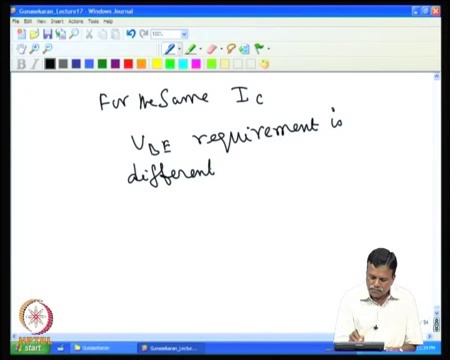 Gunasekaran_Lecture17 - Windows Journal
File Edit View Insert Actions Tools Help
100%
For the Same IC
VBE requirement is
different
NPTEL
start Gunasekaran